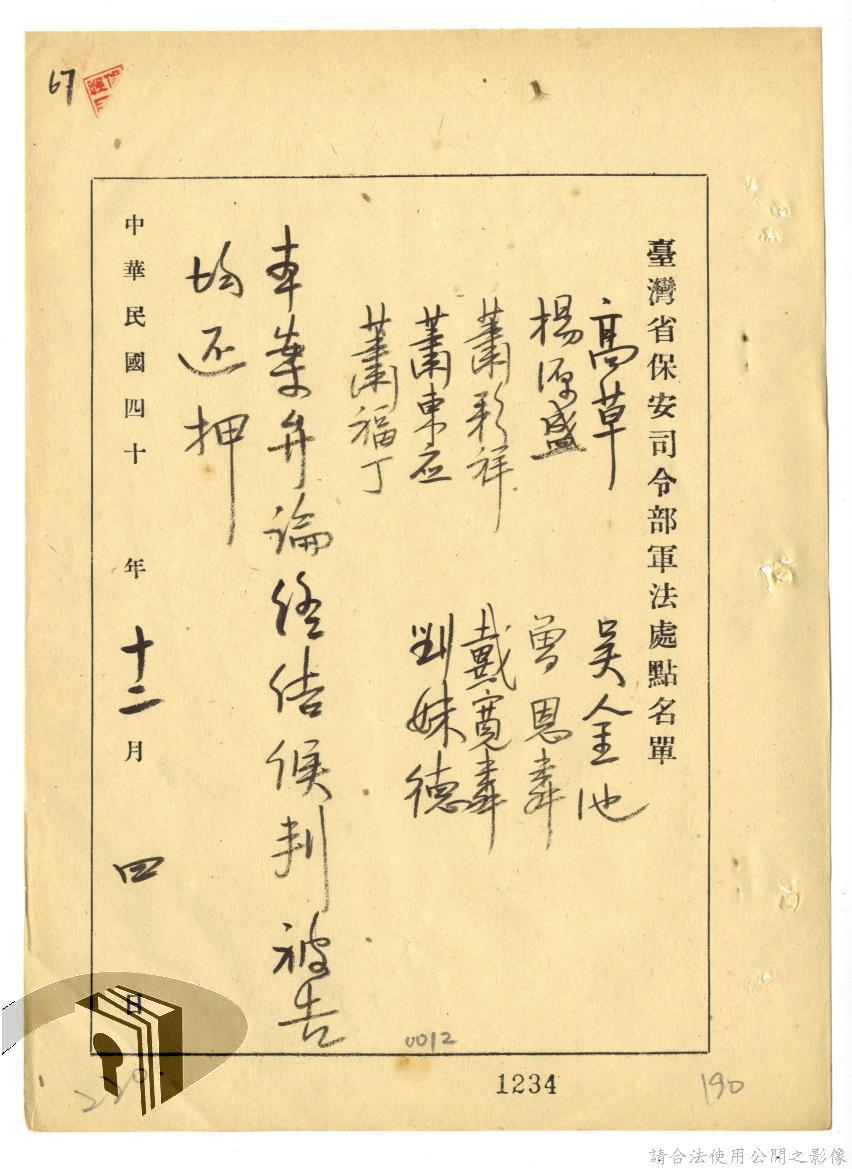 67
臺灣省保安司令部軍法處點名單
高草 吳金池
楊源盛 曾恩彝
蕭彩祥 戴寬彝
蕭東应 劉妹德
蕭福丁
本案弁論终结候判被告
均还押
中華民國四十 年 十二 月 四 日
0012
1234
190
請合法使用公開之影像